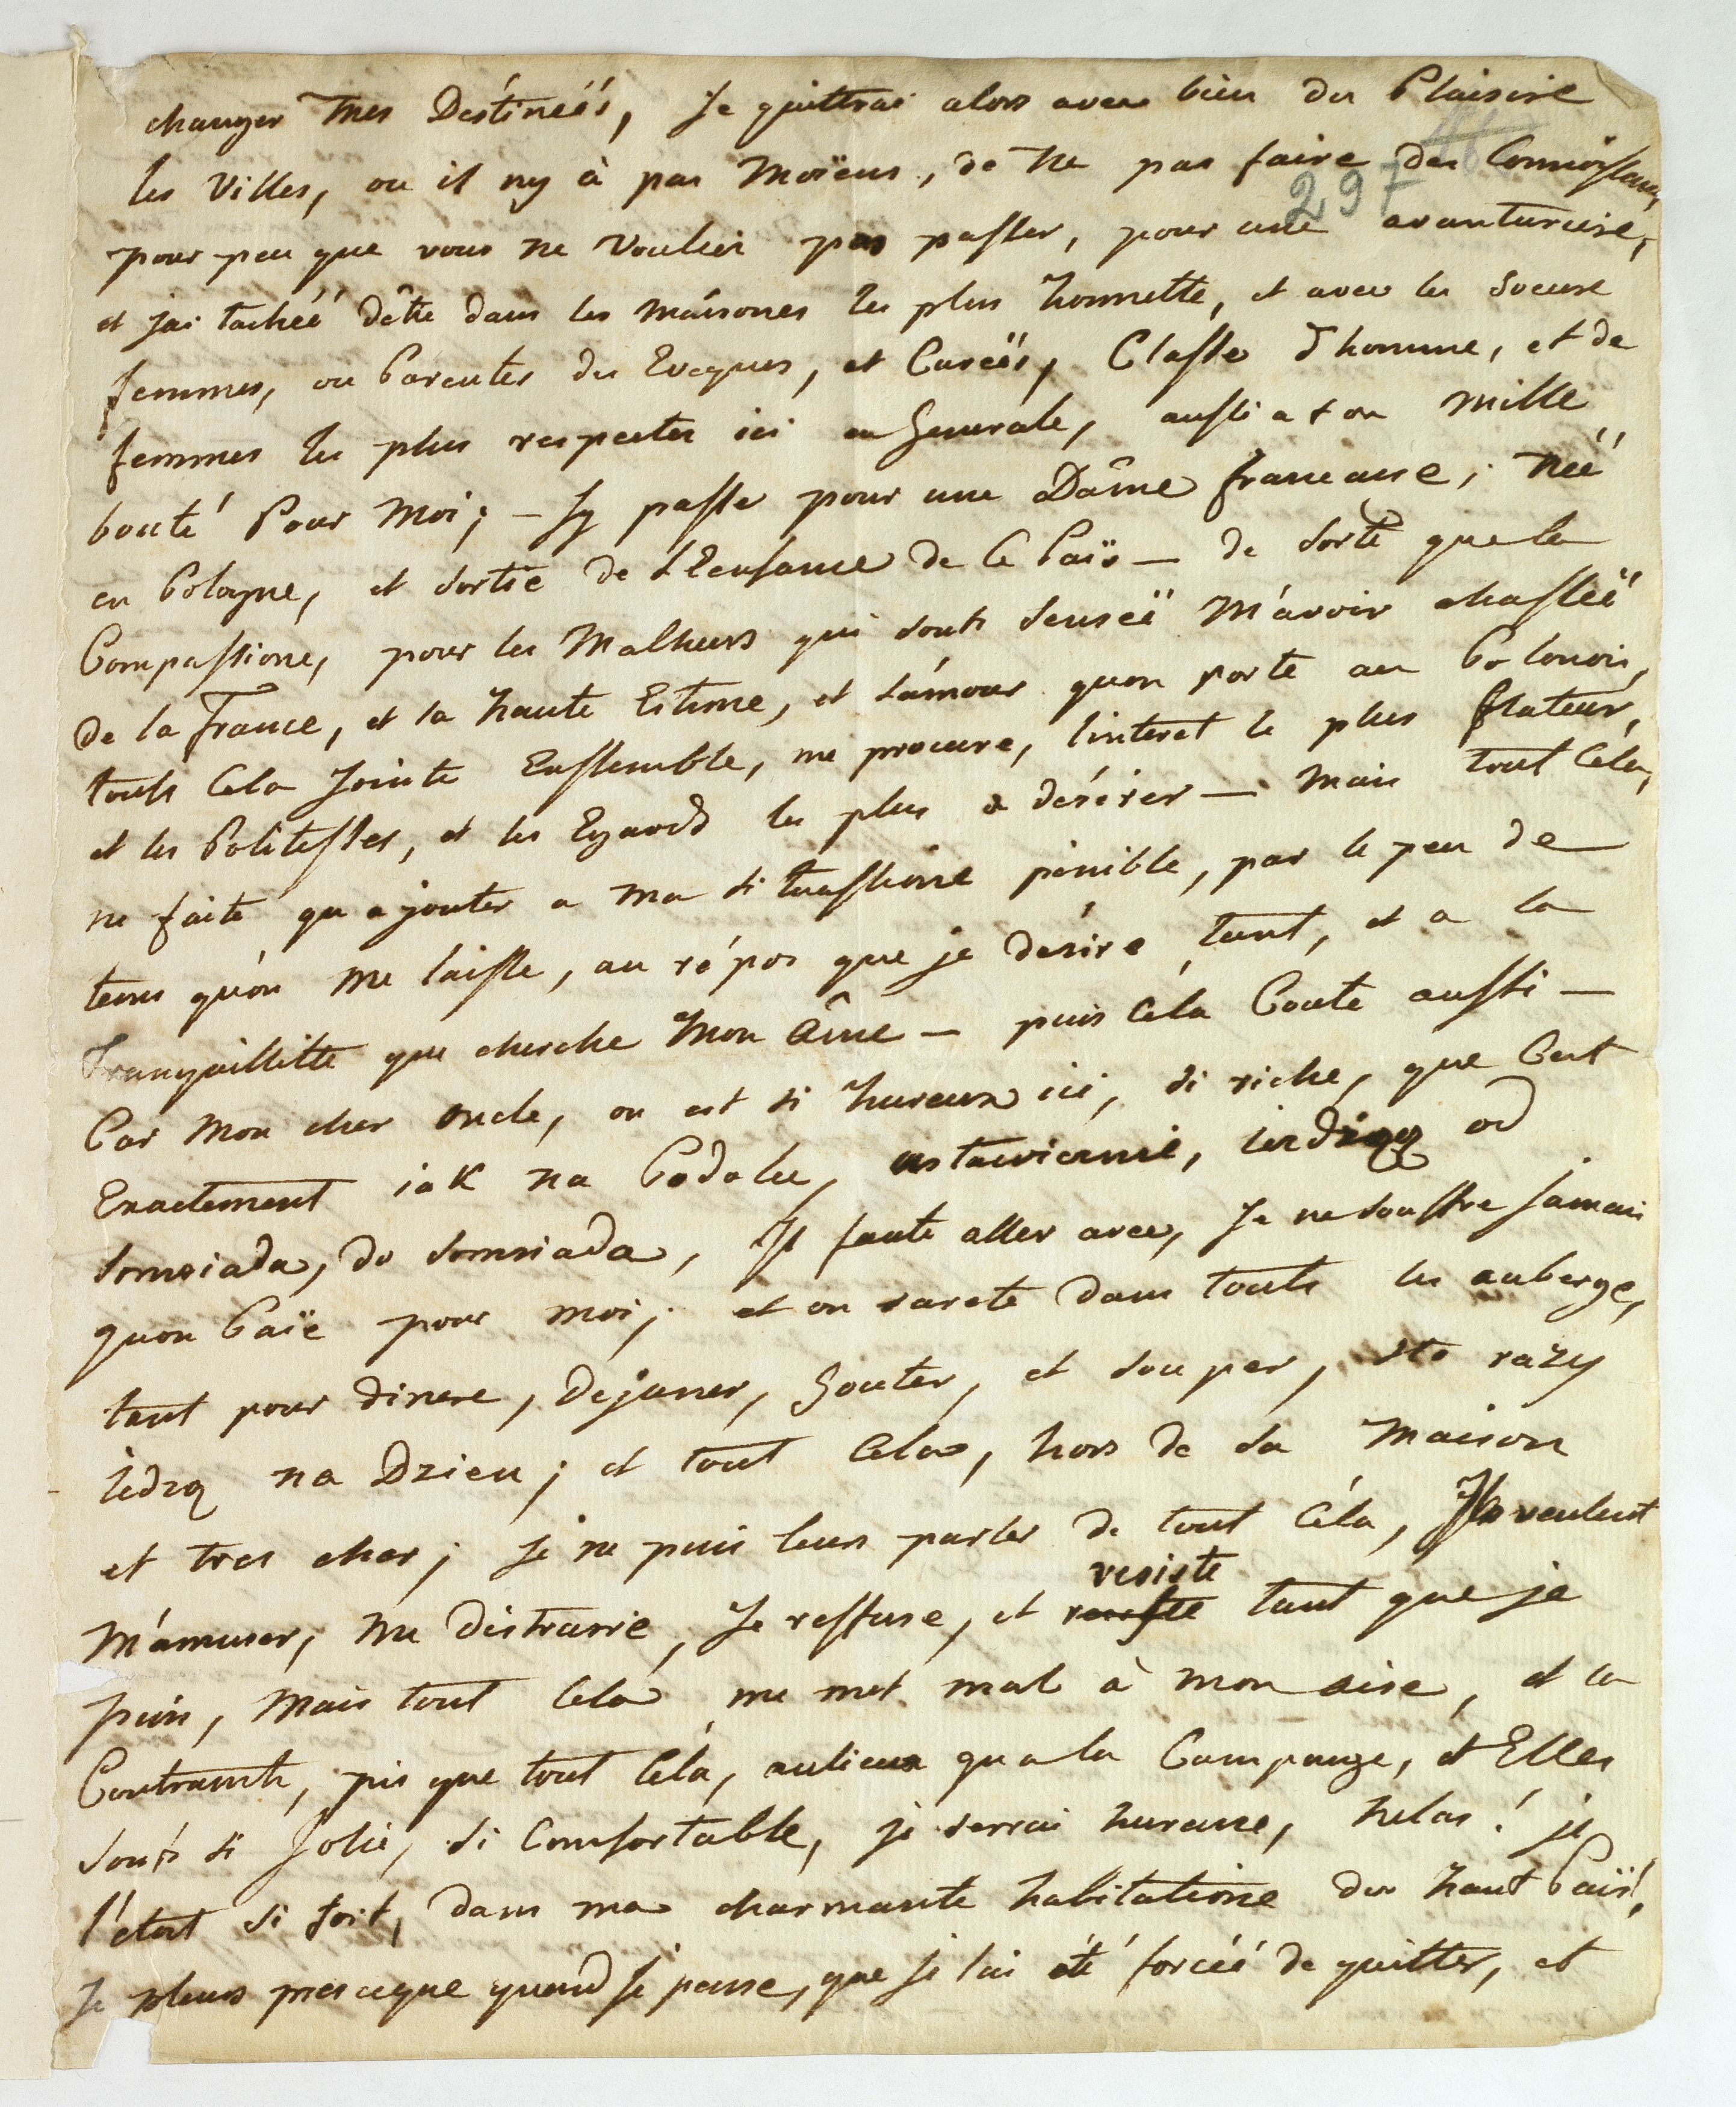 changer mes Déstineéś, Je quittrai alors avec bien du Plaisire
les Villes, ou il ny à pas Moïens, de ne pas faire des Connoissances,
297
pour peu que vous ne Vouliéz pas passer, pour une avantureire,
et jai tachéé dêtre dans les máisones les plus honnette, et avec les soeure
femmes, ou Parentes des Eveques, et Cureés, Classe d'homme, et de
femmes les plus respectes ici en Generale, aussi a t on mille
bonté Pour Moi; – Jy passe pour une Dâme francaise; néé
en Pologne, et sortie de l'Eenfance de Ce Païs – de sorte que la
Compassione, pour les Malheurs qui sonts senséé M'avoir chasséé
de la France, et la haute Estime, et l'ámour quon porte au Polonois,
touts Cela Jointe Enssemble, me procure, linteret le plus flateur,
et les Politesses, et les Egards les plus a désirer – mais tout Céla,
ne faite qu ajouter a ma situasstione pinible, par le peu de
tems qu'on me laisse, au répos que je désire tant, et a la
Tranquillitte que cherche Mon âme – puis Céla Coute aussi –
Car Mon cher oncle, on est si hureux ici, si riche, que Cest
Exactement iak na Podolu, ustawicznie, ierdzą od
somsiada, do somsiada, Il faute aller avec, Je ne souffre jamais
quon Païe pour moi; et on sarete dans touts les auberge,
tant pour dinere, Dejuner, Gouter, et souper, sto razy
iedzą na Dzien; et tout Cela, hors de sa maison
et tres cher; je ne puis leurs parler de tout Céla, Ils veulent
resiste
M'ámuser, me distrarie, Je reffuse, et tant que je
puis, Mais tout Cela me met mal à mon aise, et la
Contrainte, pis que tout Céla, aulieux qu a la Campange, et Elles
sonts si Jolie, si Comfortable, je serrai hureuse, helas! je
l'étoit si fort, dans ma charmante habitatione du haut Païs,
Je pleurs prescque quand je pense, que je lai été forcéé de quitter, et